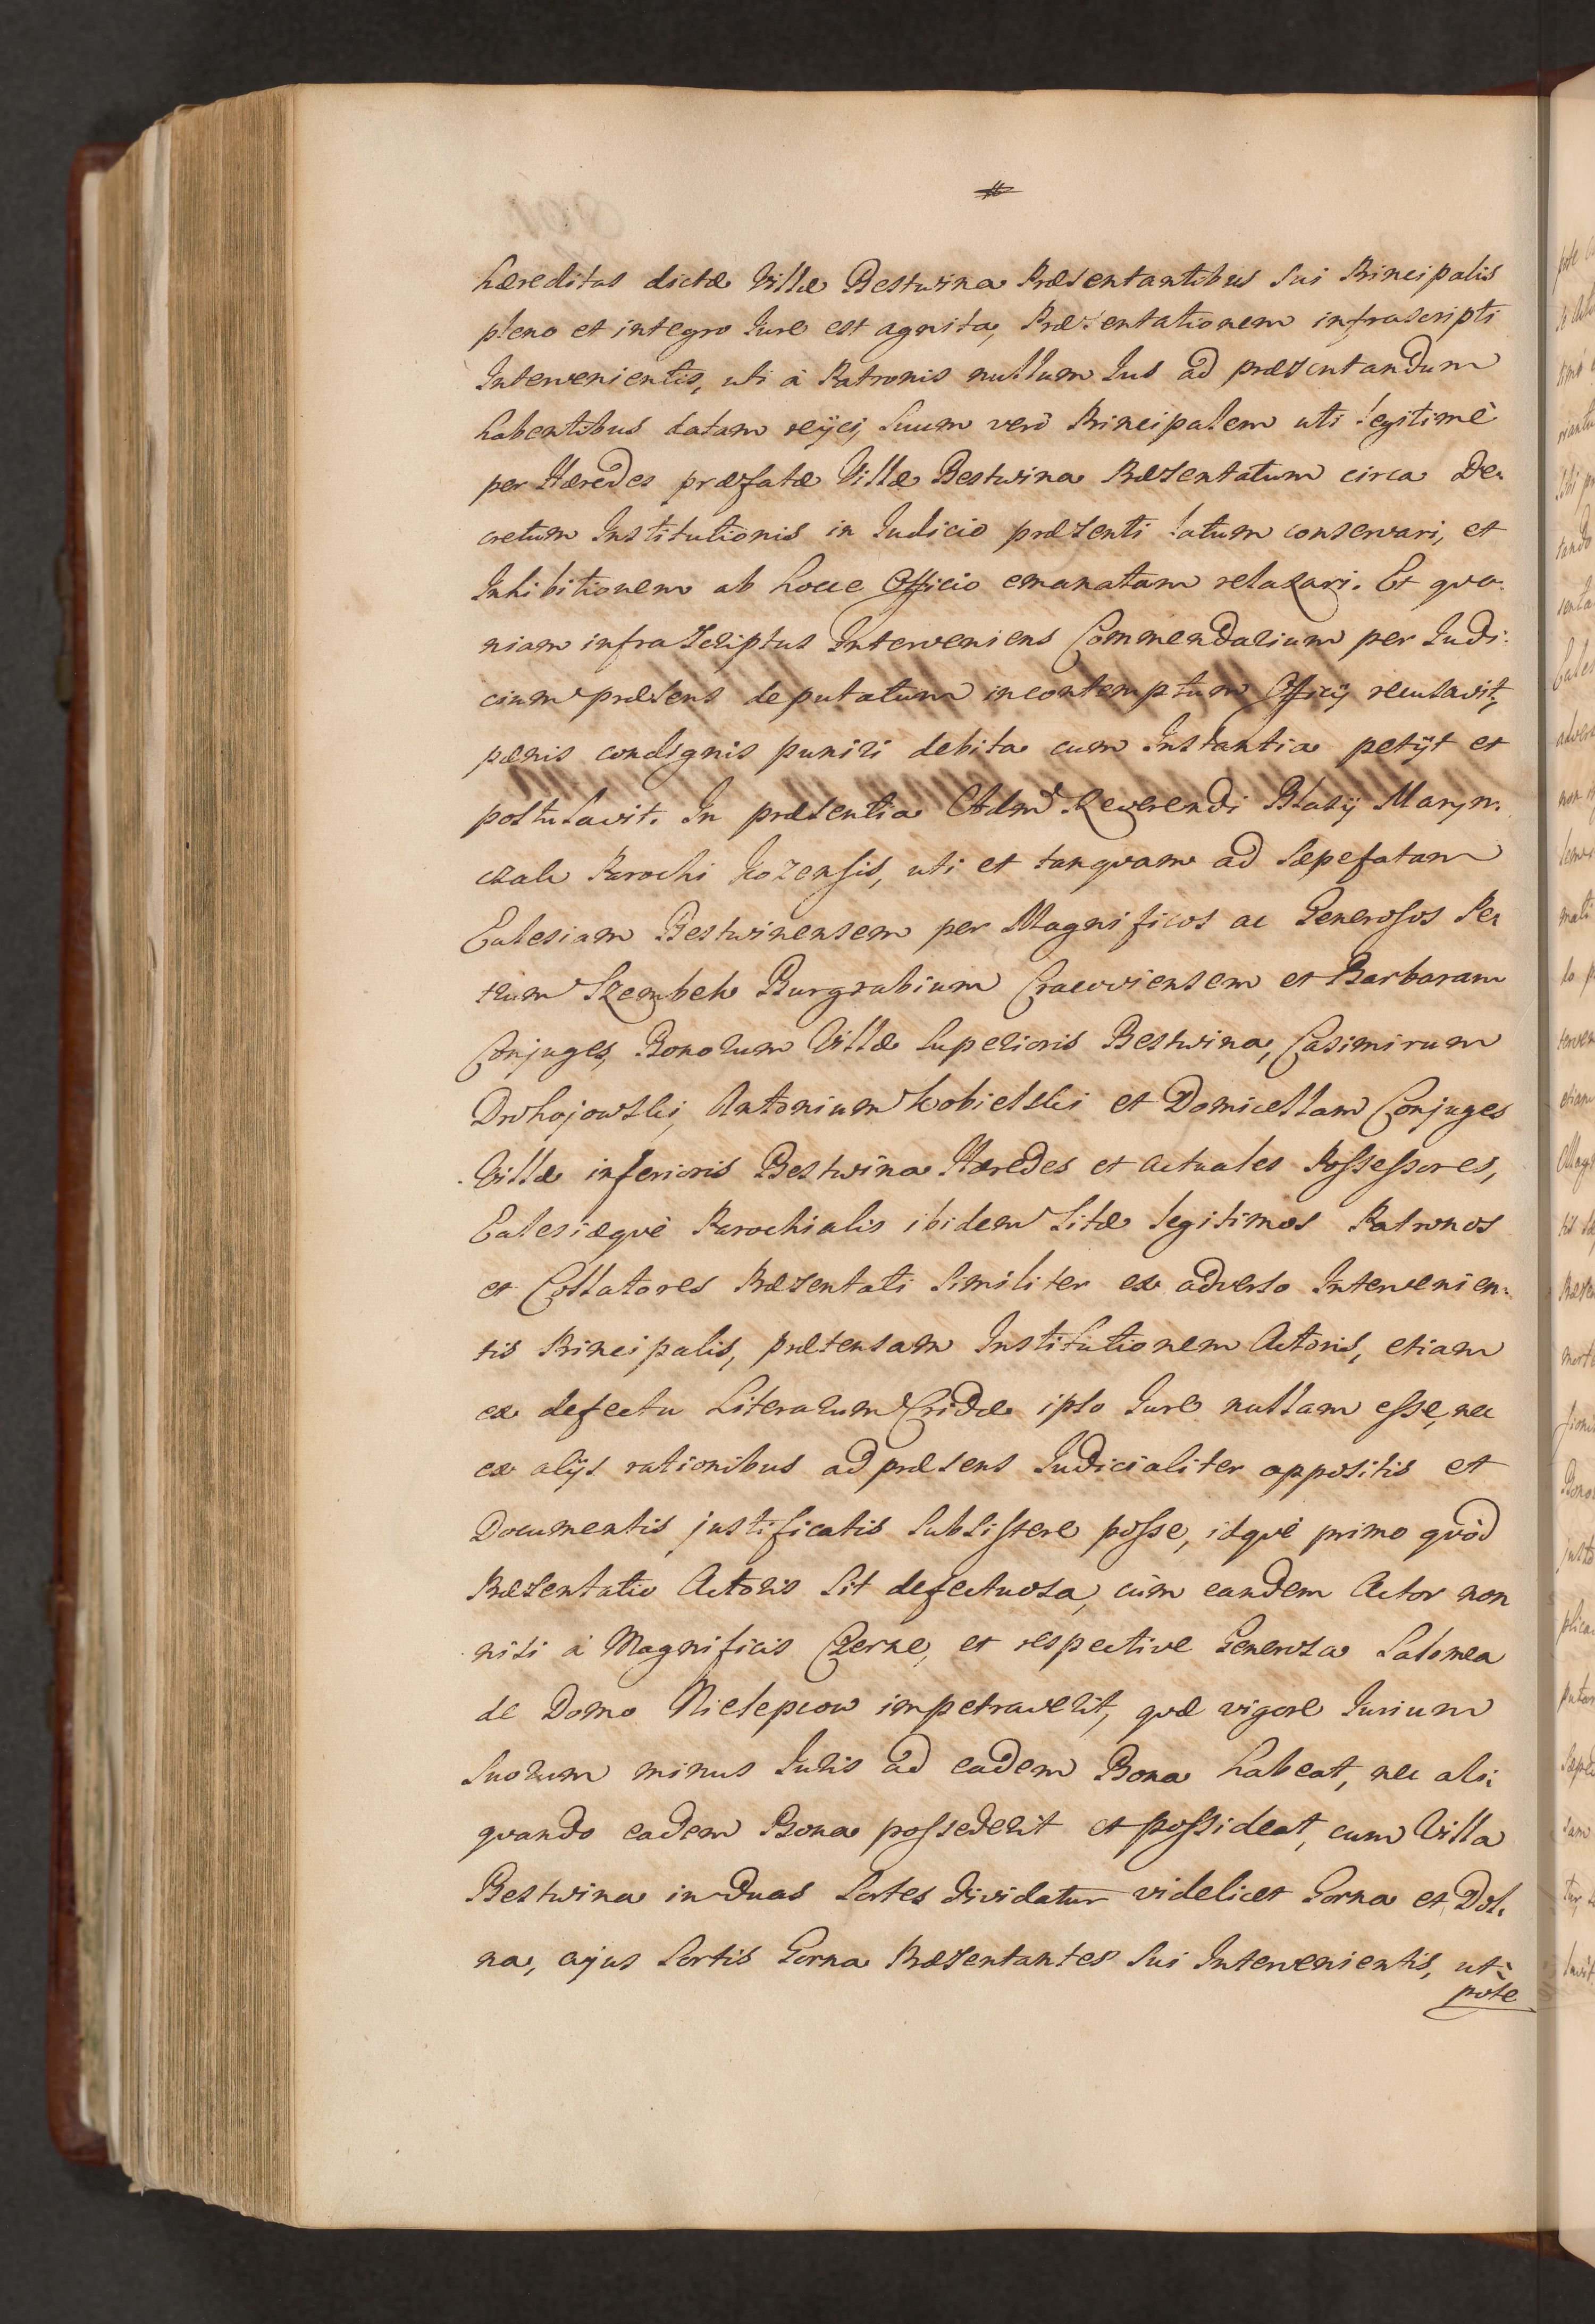 hæreditas dictæ Villæ Bestwina Præsentantibus sui Principalis
pleno et integro Iure est agnita, Præsentationem infrascripti
Intervenientis, uti à Patronis nullum Ius ad præsentandum
habentibus datam reijci, suum verò Principalem uti legitimè
per Hæredes præfatæ Villæ Bestwina Præsentatum circa De-
cretum Institutionis in Iudicio præsenti latum conservari, et
Inhibitionem ab hocce Officio emanatam relaxari. Et quo-
niam infrascriptus Interveniens Commendarium per Iudi-
cium præsens deputatum in contemptum Officij recusavit,
pænis condignis puniri debita cum Instantia petijt et
postulavit. In præsentia Admd Reverendi Blasij Maryn-
czak Parochi Kozensis, uti et tanquam ad sæpefatam
Ecclesiam Bestwinensem per Magnificos ac Generosos Pe-
trum Szembek Burgrabium Cracoviensem et Barbaram
Conjuges, Bonorum Villæ superioris Bestwina, Casimirum
Drohojowski, Antonium Kobielski et Domicellam Conjuges
Villæ inferioris Bestwina Hæredes et actuales Possessores,
Ecclesiæquè Parochialis ibidem sitæ legitimos Patronos
et Collatores Præsentati similiter ex adverso Intervenien-
tis Principalis, prætensam Institutionem Actoris, etiam
ex defectu Literarum Cridæ ipso Iure nullam esse, nec
ex alijs rationibus ad præsens Iudicialiter oppositis et
Documentis justificatis subsistere posse, idquè primo quòd
Præsentatio Actoris sit defectuosa, cùm eandem Actor non
nisi à Magnificis Czerne, et respective Generosa Salomea
de Domo Nielepcow impetraverit, quæ vigore Iurium
suorum minus Iuris ad eadem Bona habeat, nec ali-
quando eadem Bona possederit et possideat, cum Villa
Bestwina in duas Sortes dividatur videlicet Gorna et Dol-
na, cujus Sortis Gorna Præsentantes sui Intervenientis, ut-
pote